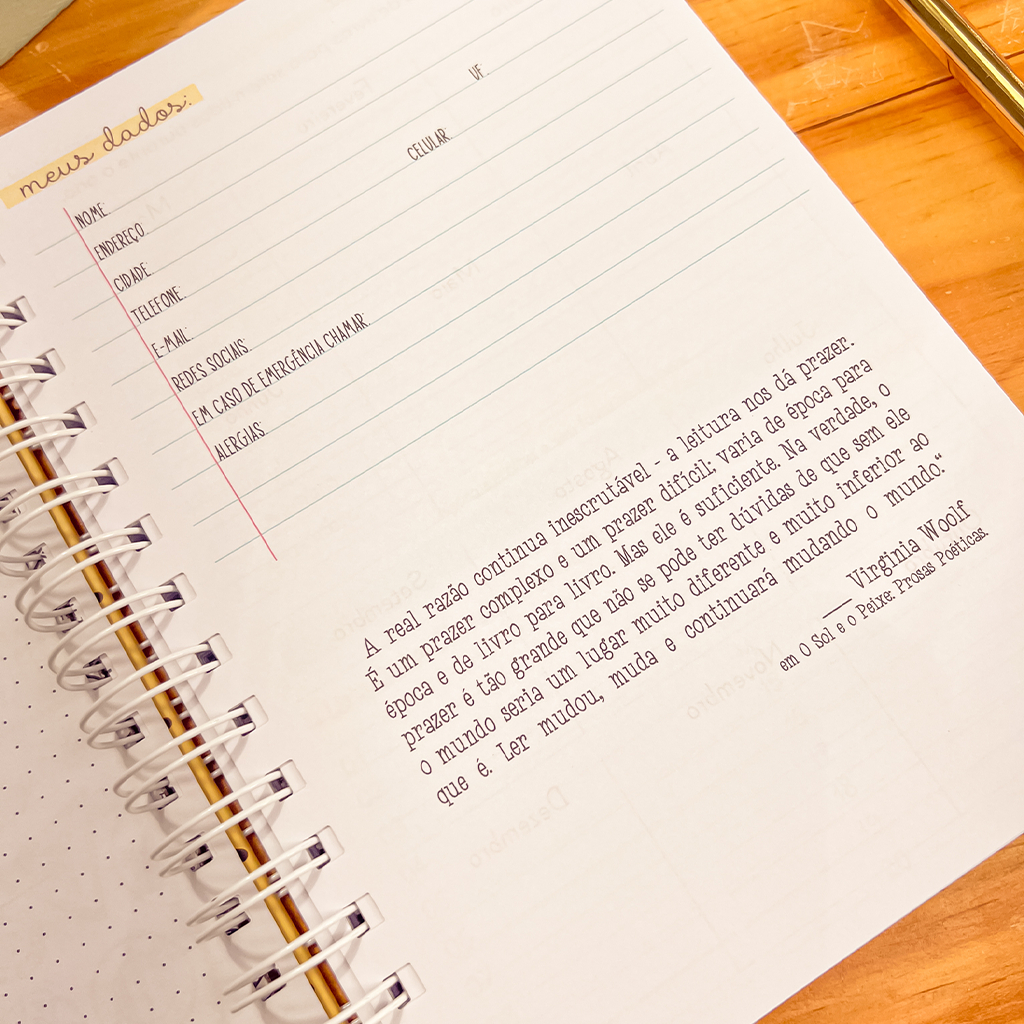 meus dados:
NOME:
ENDEREÇO:
CIDADE: UF:
TELEFONE: CELULAR:
E-MAIL:
REDES SOCIAIS:
EM CASO DE EMERGÊNCIA CHAMAR:
ALERGIAS:
A real razão continua inescrutável - a leitura nos dá prazer.
É um prazer complexo e um prazer difícil; varia de época para
época e de livro para livro. Mas ele é suficiente. Na verdade, o
prazer é tão grande que não se pode ter dúvidas de que sem ele
o mundo seria um lugar muito diferente e muito inferior ao
que é. Ler mudou, muda e continuará mudando o mundo."
___ Virginia Woolf
em O Sol e o Peixe: Prosas Poéticas.